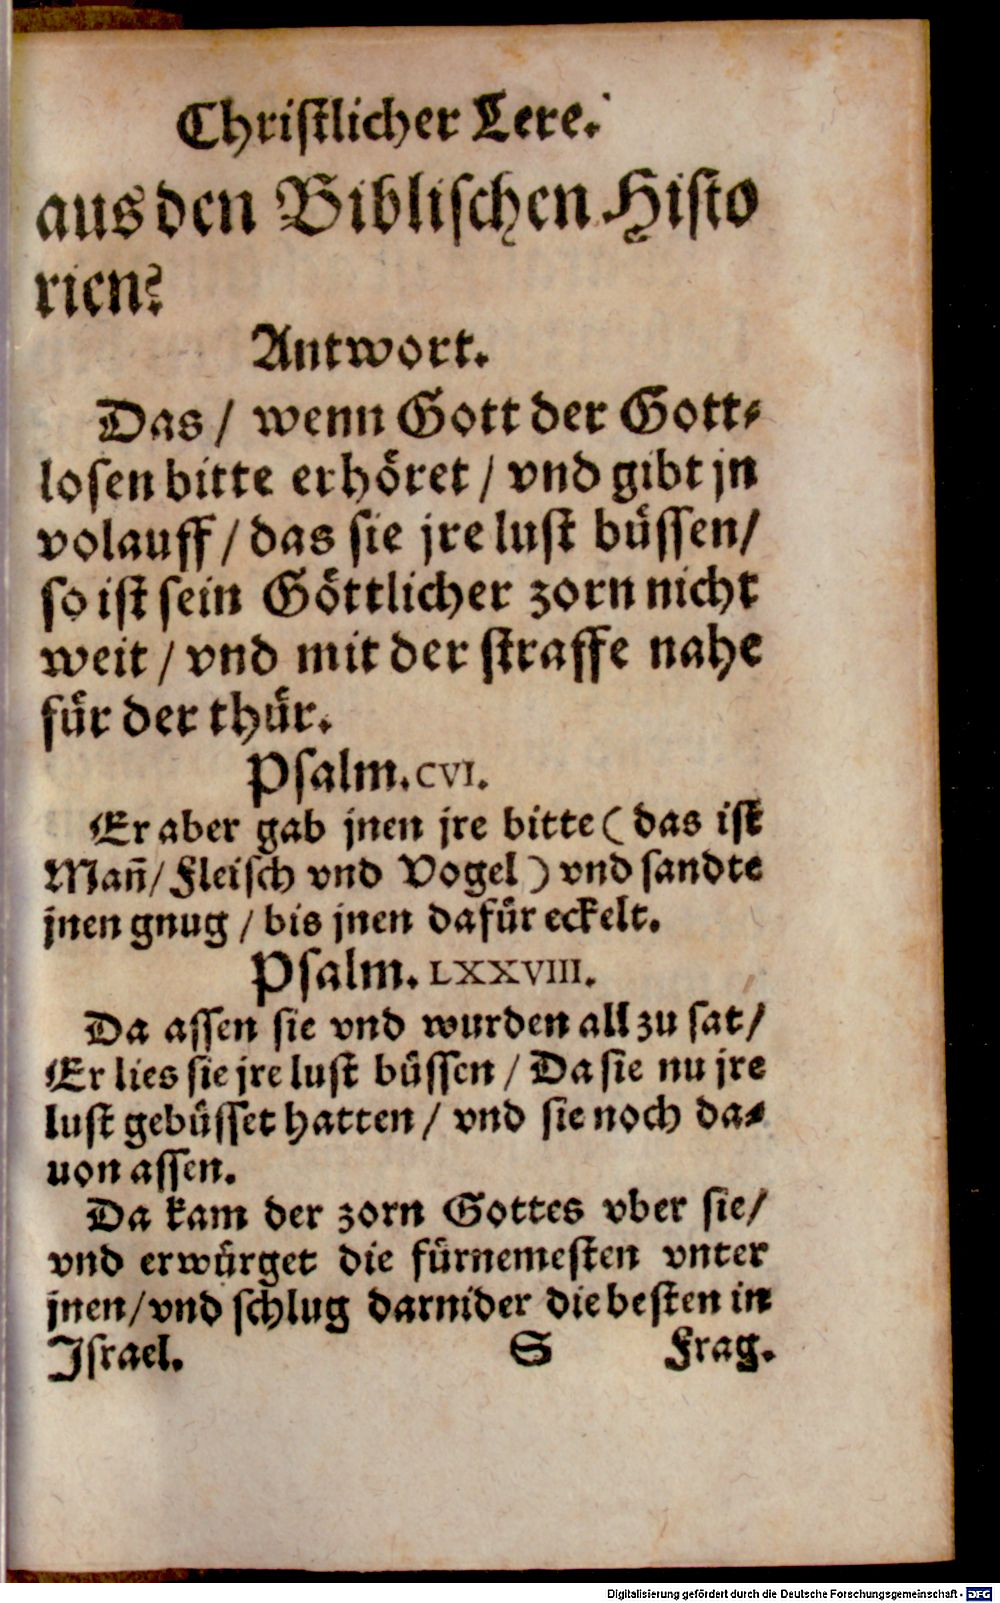 Chriſtlicher Lere.
aus den Bibliſchen Hiſto
rien?
Antwort.
Das / wenn Gott der Gott⸗
loſen bitte erhöret / vnd gibt jn
volauff / das ſie jre luſt büſſen /
ſo iſt ſein Göttlicher zorn nicht
weit / vnd mit der ſtraffe nahe
für der thür.
Pſalm. CVI.
Er aber gab jnen jre bitte ( das iſt
Man̄ / Fleiſch vnd Vogel ) vnd ſandte
jnen gnug / bis jnen dafür eckelt.
Pſalm. LXXVIII.
Da aſſen ſie vnd wurden all zu ſat /
Er lies ſie jre luſt büſſen / Da ſie nu jre
luſt gebüſſet hatten / vnd ſie noch da⸗
uon aſſen.
Da kam der zorn Gottes vber ſie /
vnd erwürget die fürnemeſten vnter
jnen / vnd ſchlug darnider die beſten in
Iſrael. S Frag.
Digitalisierung gefördert durch die Deutsche Forschungsgemeinschaft - DFG